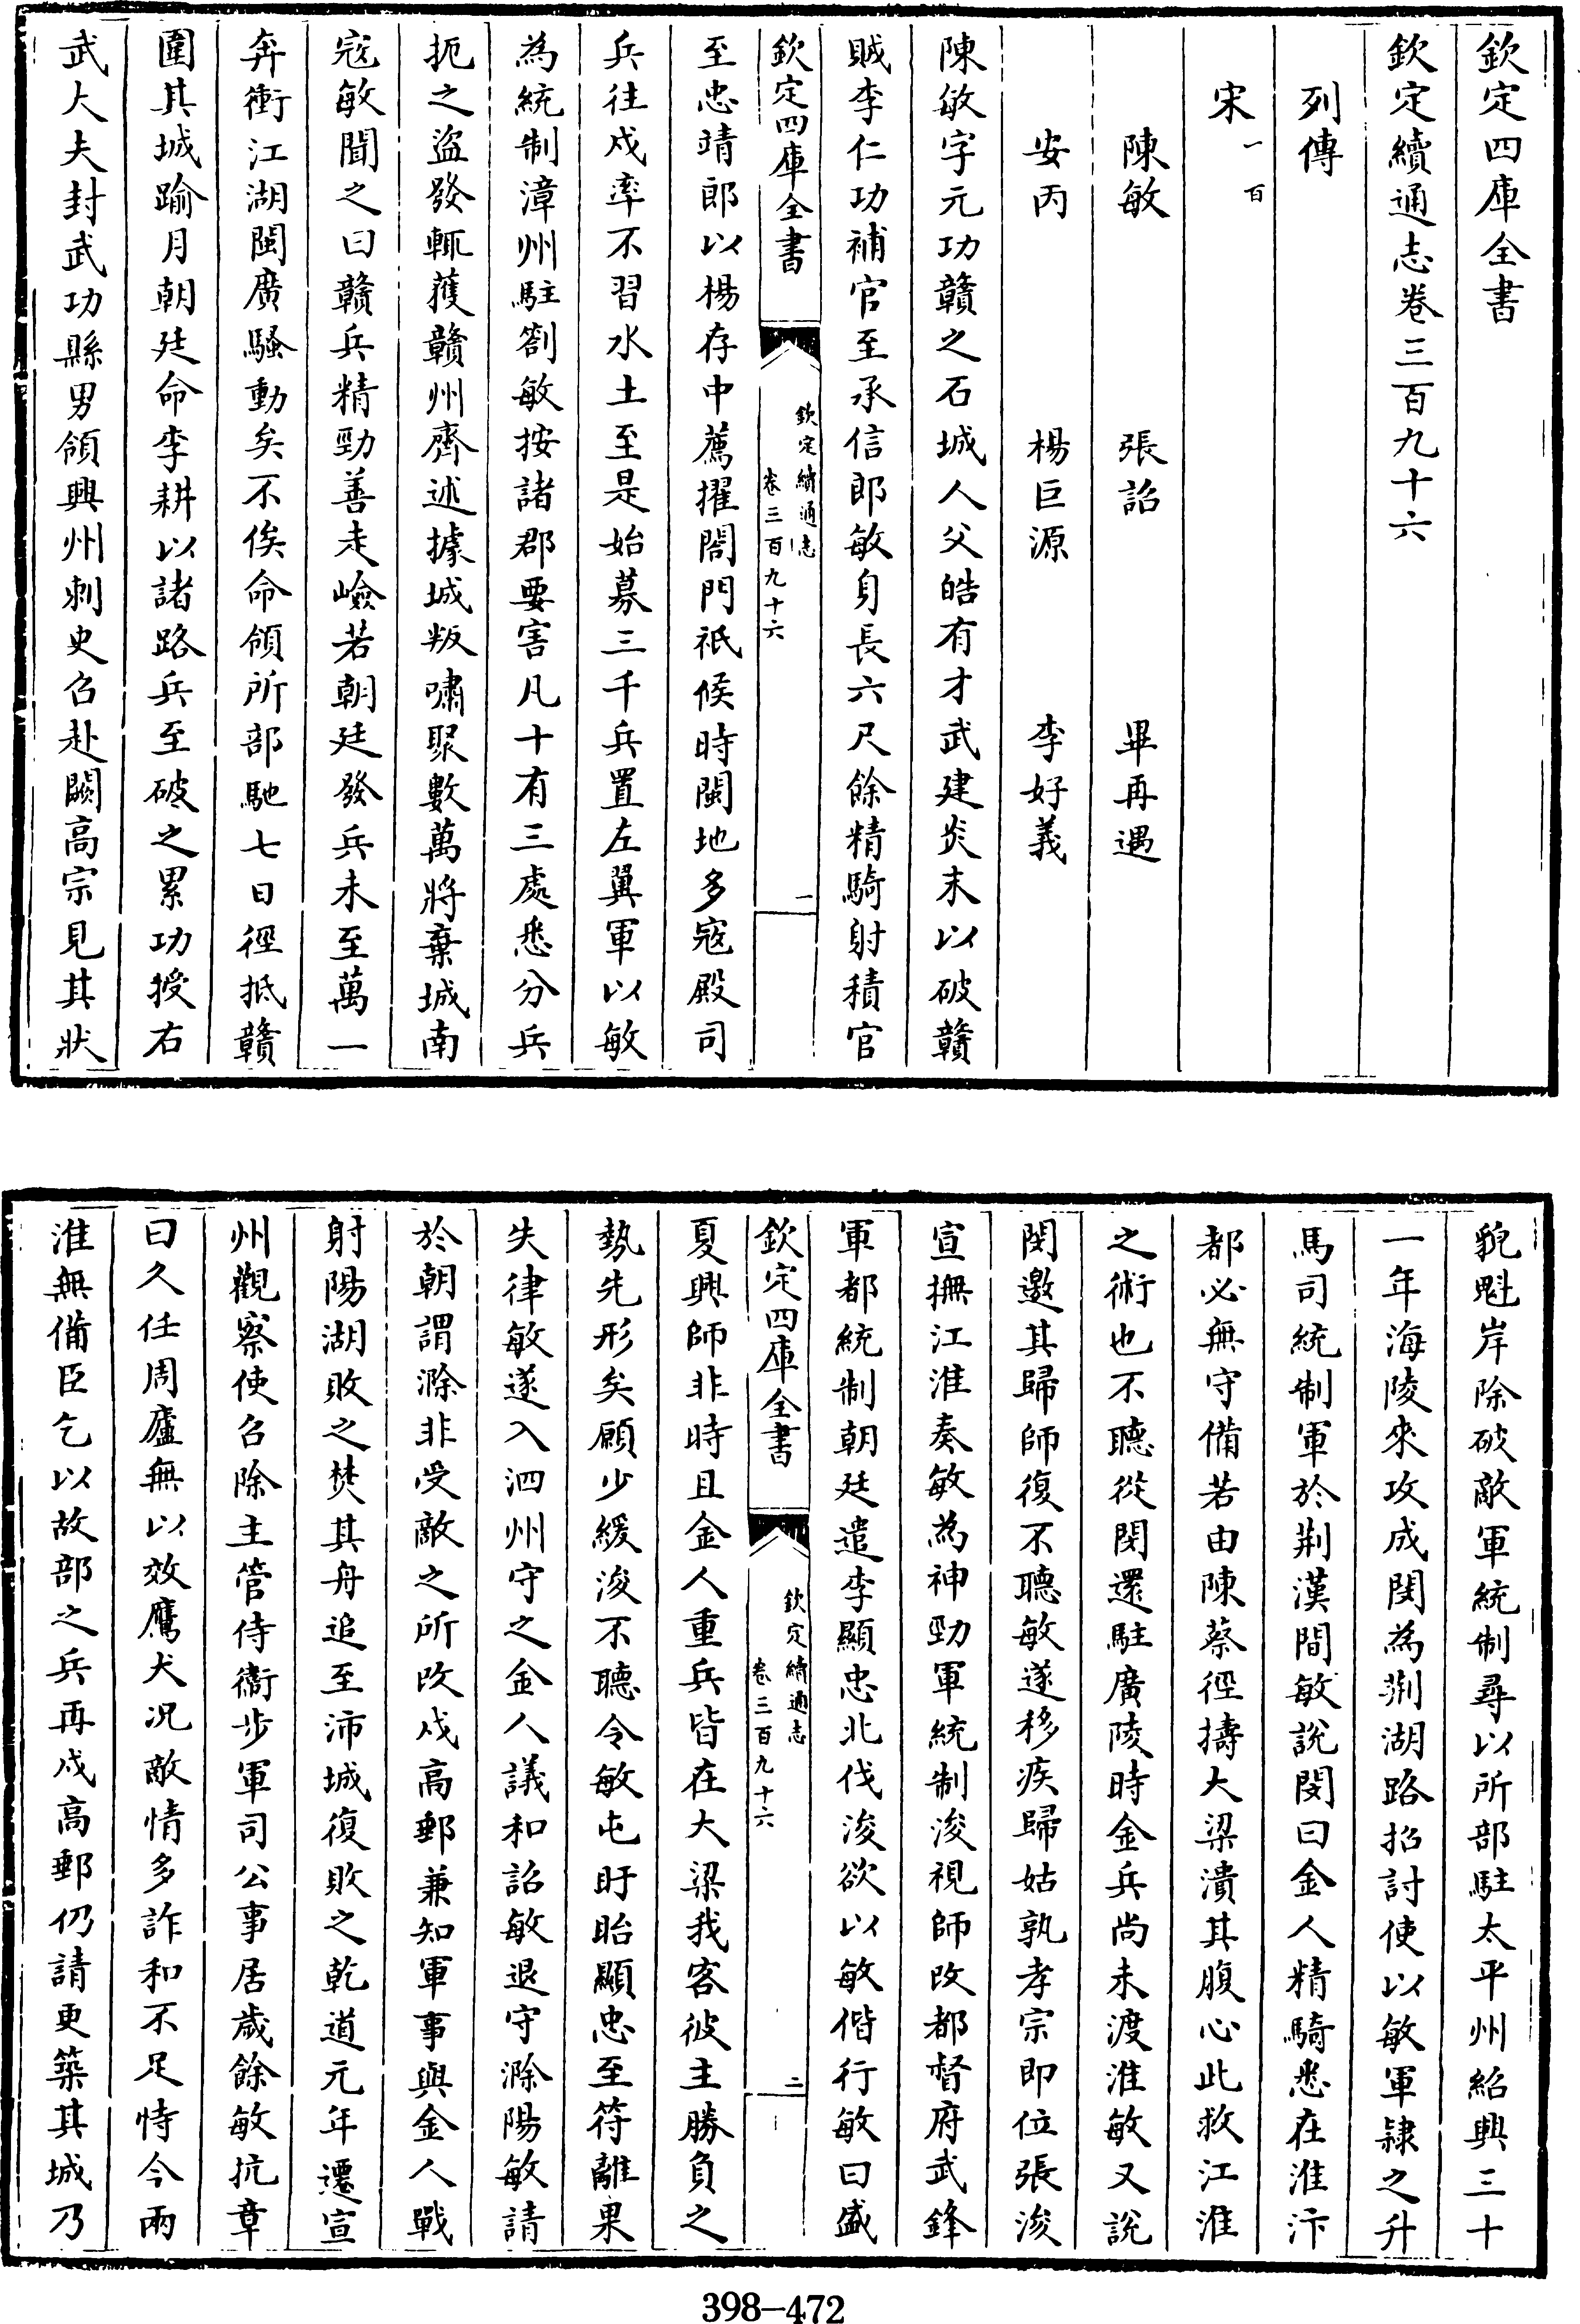 欽定四庫全書
欽定續通志卷三百九十六
列傳
宋一百
陳敏 張詔 畢再遇
安丙 楊巨源 李好義
陳敏字元功贛之石城人父皓有才武建炎末以破贛
賊李仁功補官至承信郎敏身長六尺餘精騎射積官
欽定四庫全書
欽定續通志
卷三百九十六
一
至忠靖郎以楊存中薦擢閤門祇候時閩地多寇殿司
兵往戍率不習水土至是始募三千兵置左翼軍以敏
為統制漳州駐劄敏按諸郡要害凡十有三處悉分兵
扼之盜發輒獲贛州齊述據城叛嘯聚數萬將棄城南
寇敏聞之曰贛兵精勁善走嶮若朝廷發兵未至萬一
奔衝江湖閩廣騷動矣不俟命領所部馳七日徑抵贛
圍其城踰月朝廷命李耕以諸路兵至破之累功授右
武大夫封武功縣男領興州刺史召赴闕高宗見其狀
貌魁岸除破敵軍統制尋以所部駐太平州紹興三十
一年海陵來攻成閔為荆湖路招討使以敏軍隸之升
馬司統制軍於荆漢間敏說閔曰金人精騎悉在淮汴
都必無守備若由陳蔡徑擣大梁潰其腹心此救江淮
之術也不聽從閔還駐廣陵時金兵尚未渡淮敏又說
閔邀其歸師復不聽敏遂移疾歸姑孰孝宗即位張浚
宣撫江淮奏敏為神勁軍統制浚視師改都督府武鋒
軍都統制朝廷遣李顯忠北伐浚欲以敏偕行敏曰盛
欽定四庫全書
欽定續通志
卷三百九十六
二
夏興師非時且金人重兵皆在大梁我客彼主勝負之
勢先形矣願少緩浚不聽令敏屯盱眙顯忠至符離果
失律敏遂入泗州守之金人議和詔敏退守滁陽敏請
於朝謂滁非受敵之所改戍高郵兼知軍事與金人戰
射陽湖敗之焚其舟追至沛城復敗之乾道元年遷宣
州觀察使召除主管侍衛步軍司公事居歲餘敏抗章
曰久任周廬無以效鷹犬况敵情多詐和不足恃今兩
淮無備臣乞以故部之兵再戍高郵仍請更築其城乃
398-472